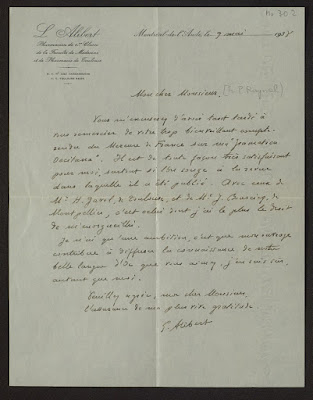 (No 302
L. Alibert
Pharmacien de 1ère Classe
de la Faculté de Médecine
et de Pharmacie de Toulouse
Montréal de l'Aude, le 9 mai 1937
Mon cher Monsieur,
Vous m'excuserez d'avoir tant tardé à
vous remercier de votre trop bienveillant compte-
rendu du Mercure de France sur ma "Gramatica
Occitana". Il est de toute façon très satisfaisant
pour moi, surtout si l'on songe à la revue
dans laquelle il a été publié. Avec ceux de
Mr. de Toulouse, et de Mr. J. de
Montpellier, c'est celui dont j'ai le plus le droit
de m'enorgueillir.
Je n'ai que une ambition, c'est que mon ouvrage
contribue à diffuser la connaissance de cette
belle langue d'Oc que vous aimez, j'en suis sûr,
autant que moi.
Veuillez agréer, mon cher Monsieur,
l'assurance de ma plus vive gratitude
L. Alibert